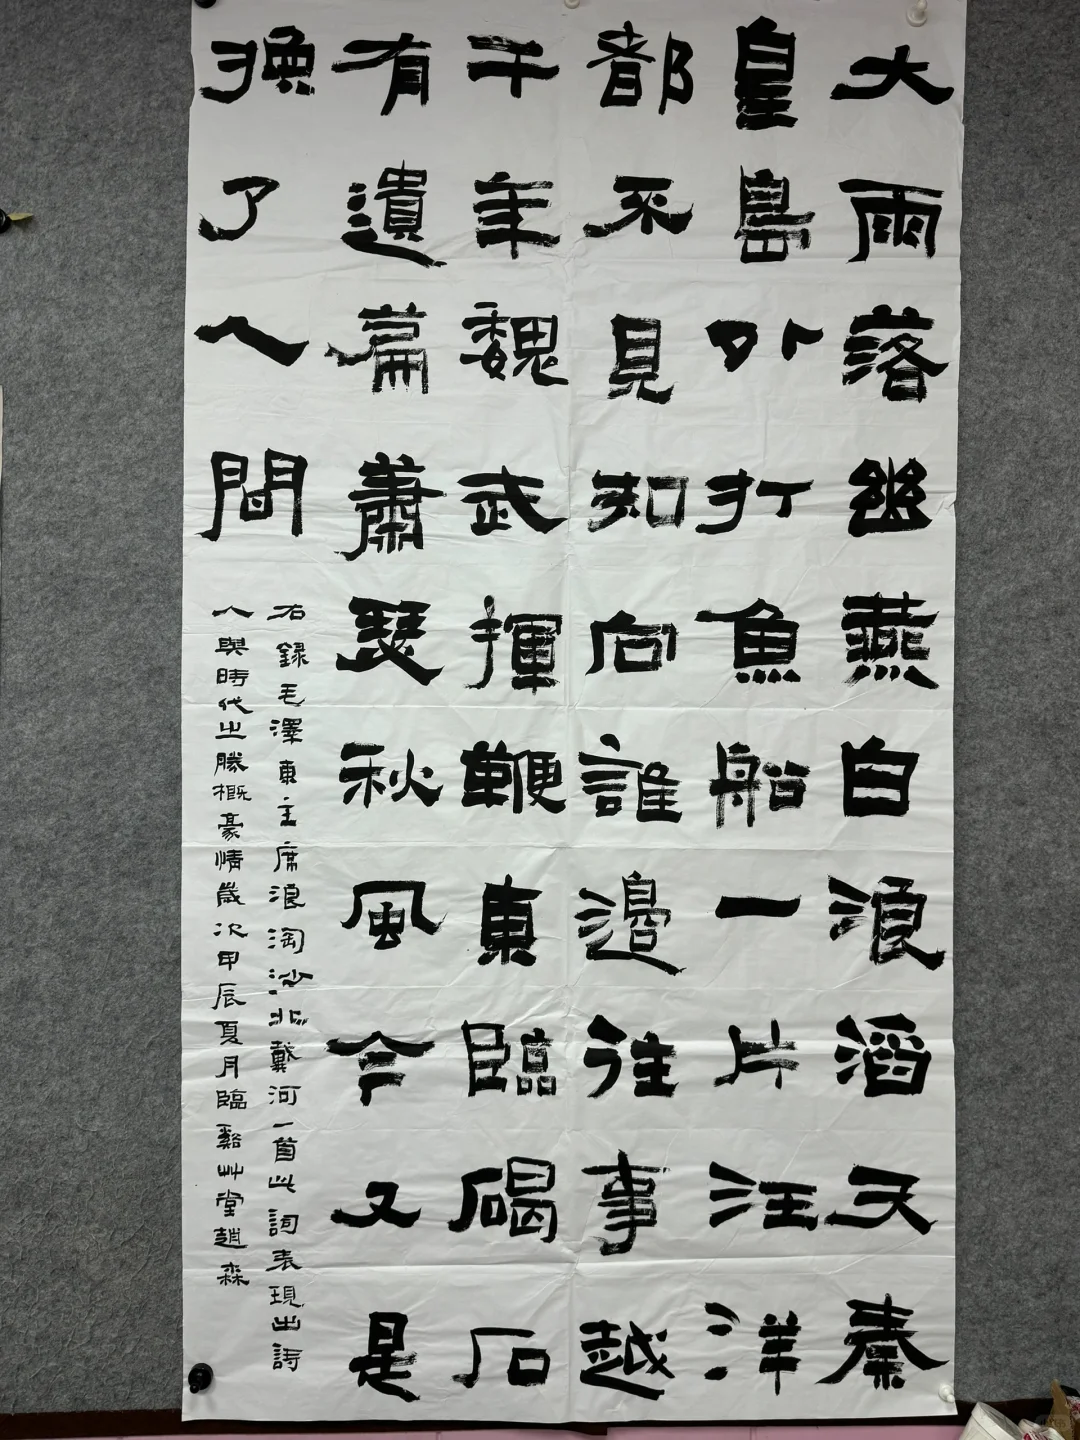 大雨落幽燕白浪滔天秦
皇島外打魚船一片汪洋
都不見知向誰邊往事越
千年魏武揮鞭東臨碣石
有遺篇蕭瑟秋風今又是
換了人間
右録毛澤東主席浪淘沙北戴河一首此詞表現出詩
人與時代之勝概豪情歲次甲辰夏月臨谿艸堂趙森